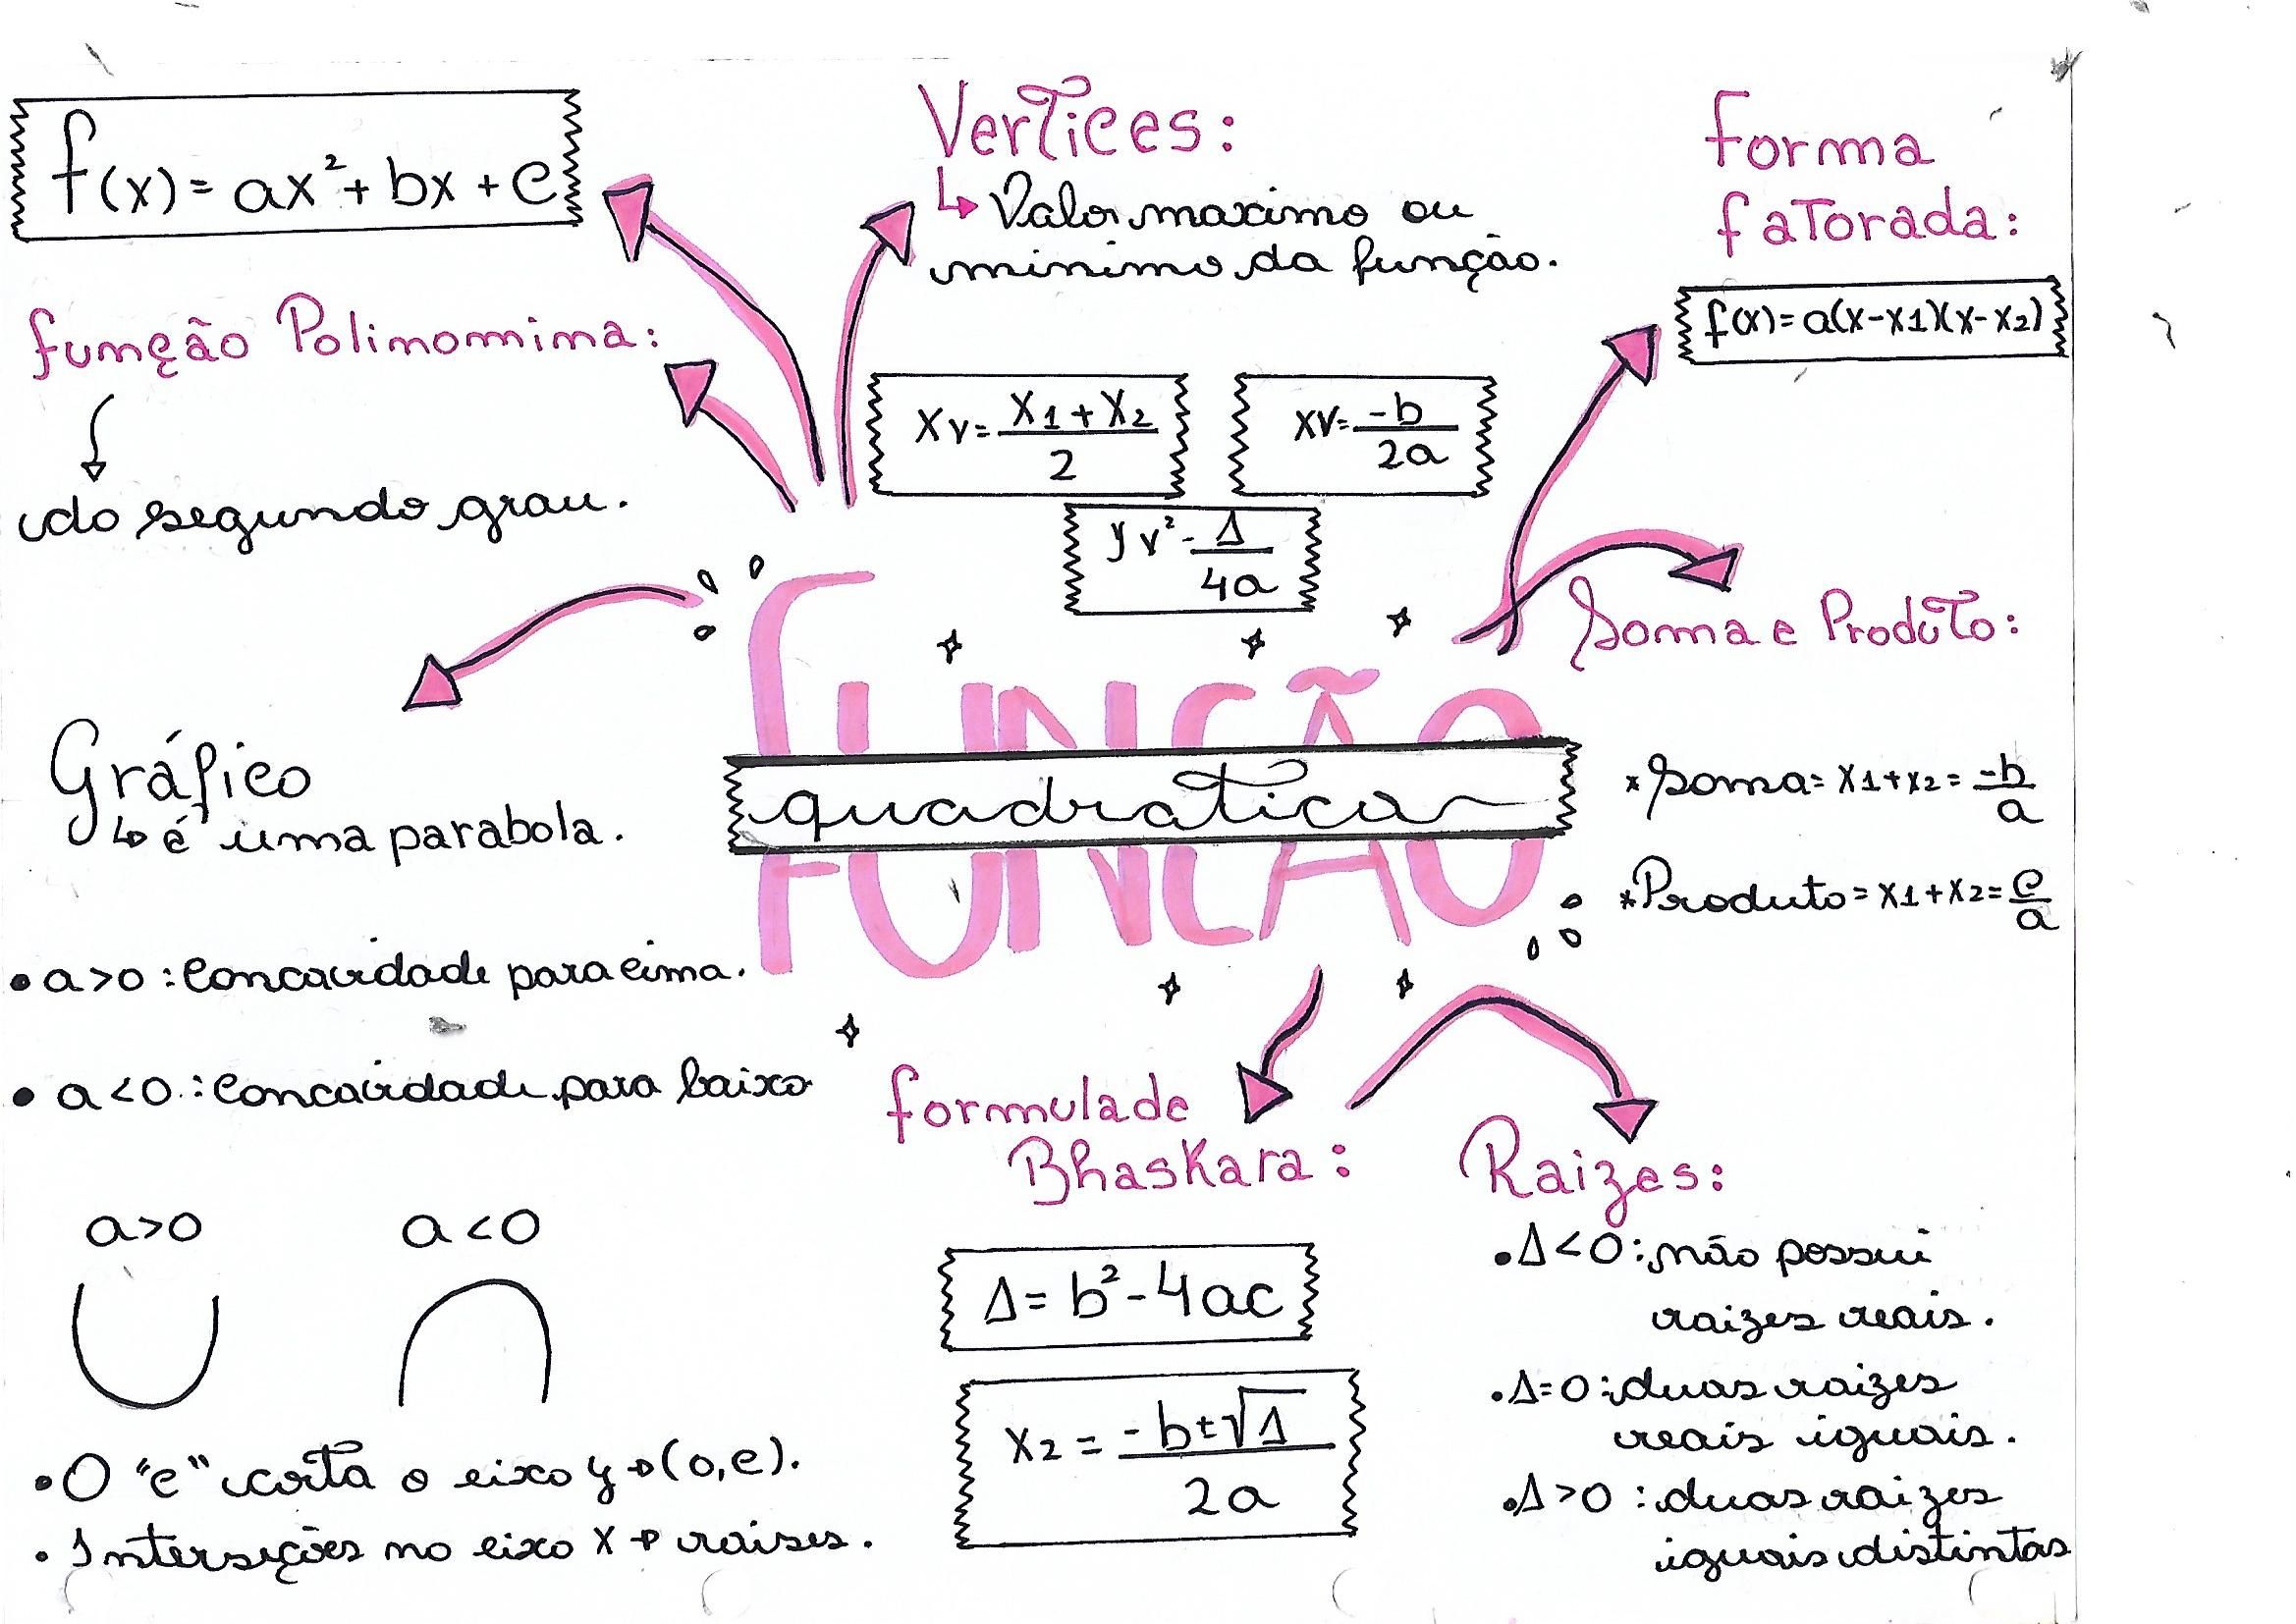 f(x) = ax² + bx + c
função Polinomima:
do segundo grau.
Vertices:
Valor maximo ou
minimo da função.
Xv = X1 + X2 / 2
XV = -b / 2a
yv² - Δ / 4a
forma
faTorada:
f(x) = a(x-x1)(x-x2)
Soma e ProduTo:
* Soma = x1 + x2 = -b / a
* Produto = x1 + x2 = c / a
FUNÇÃO
quadratica
Gráfico
é uma parabola.
• a>0 : Concavidade para cima.
• a<0 : Concavidade para baixo
a>0 a<0
• O "c" corta o eixo y → (0,c).
• Interseções no eixo X → raises.
formula de
Bhaskara:
Δ = b² - 4ac
X2 = -b ± √Δ / 2a
Raizes:
• Δ<0 : não possui
raizes reais.
• Δ=0 : duas raizes
reais iguais.
• Δ>0 : duas raizes
iguais distintas